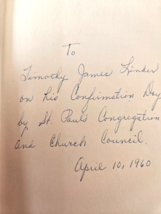 To
Timothy James
on his Confirmation Day
by St. Paul's Congregation
and Church Council.
April 10, 1960